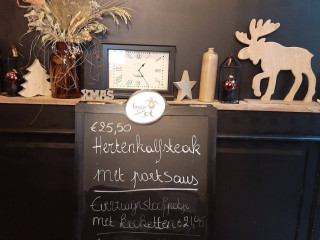 XMAS
€25,50
Hertenkalfsteak
met portsaus
met kroketten €21,95